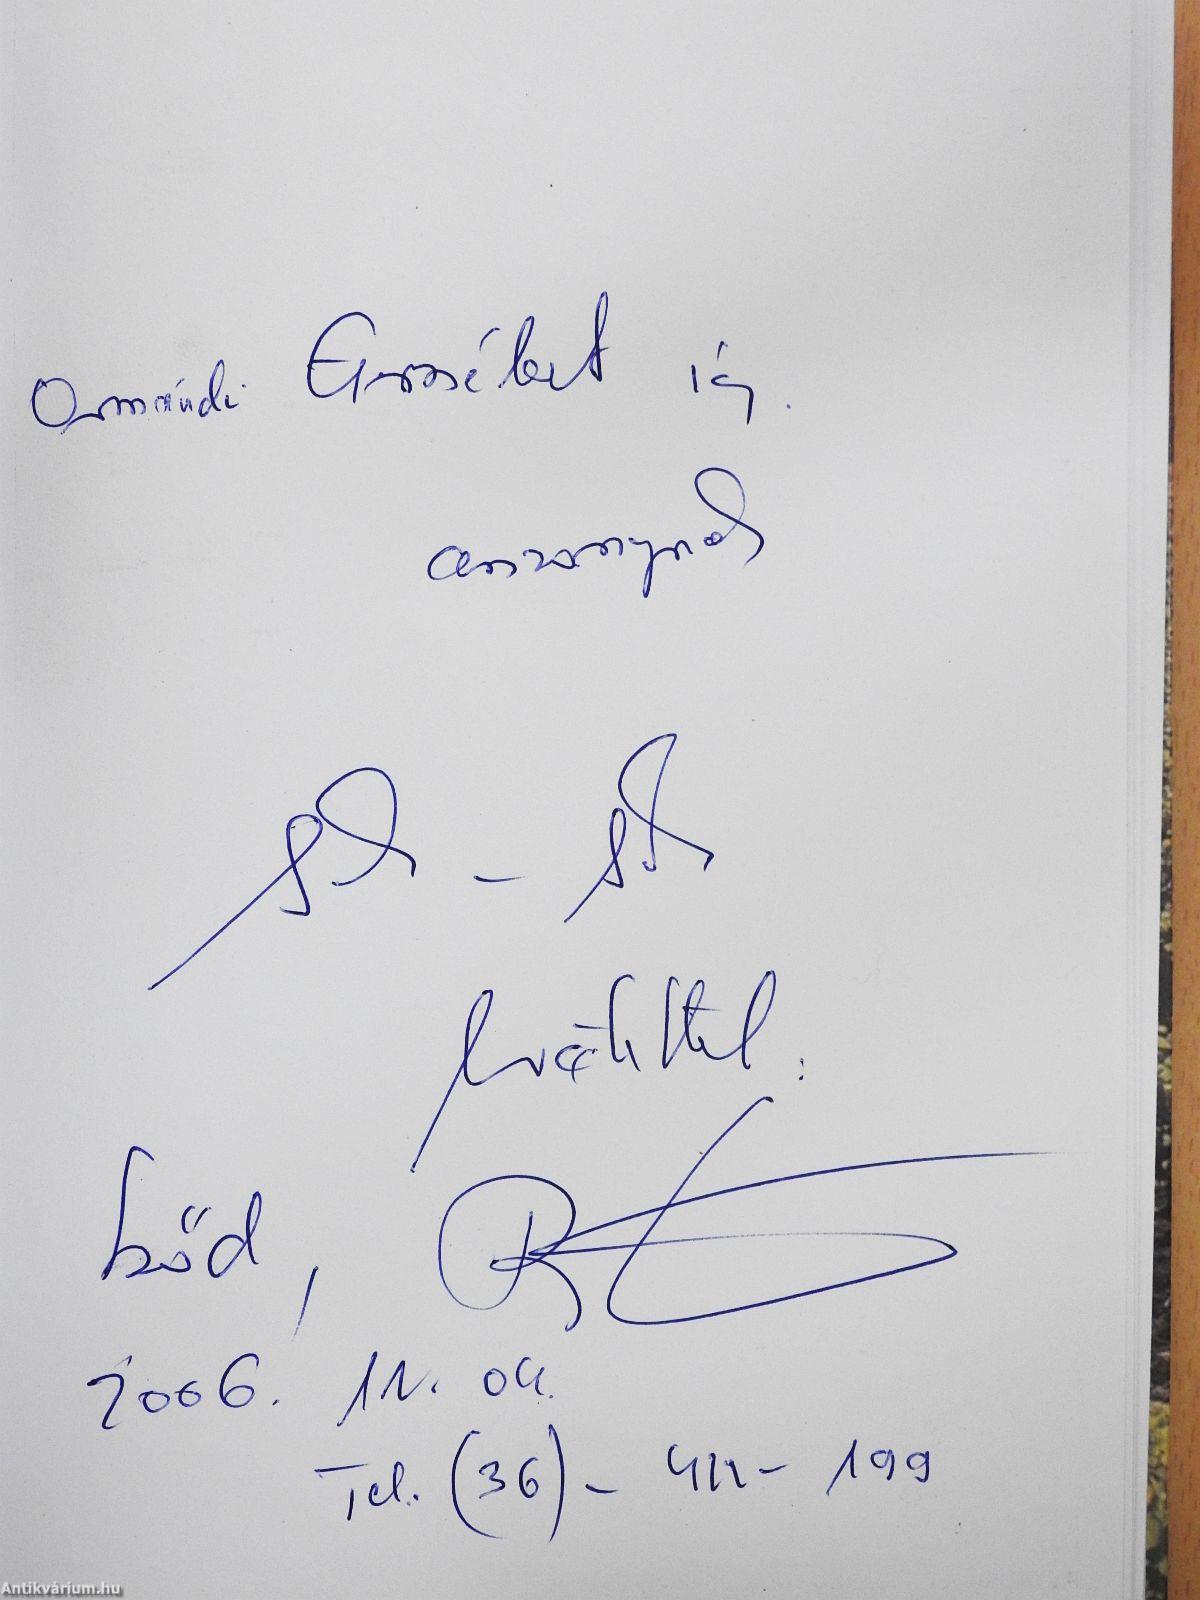 Ormándi Erzsébet ig.
asszonynak
sok - sok
szeretettel:
Sződ,
2006. 11. 04.
Tel. (36) - 411 - 199
Antikvárium.hu